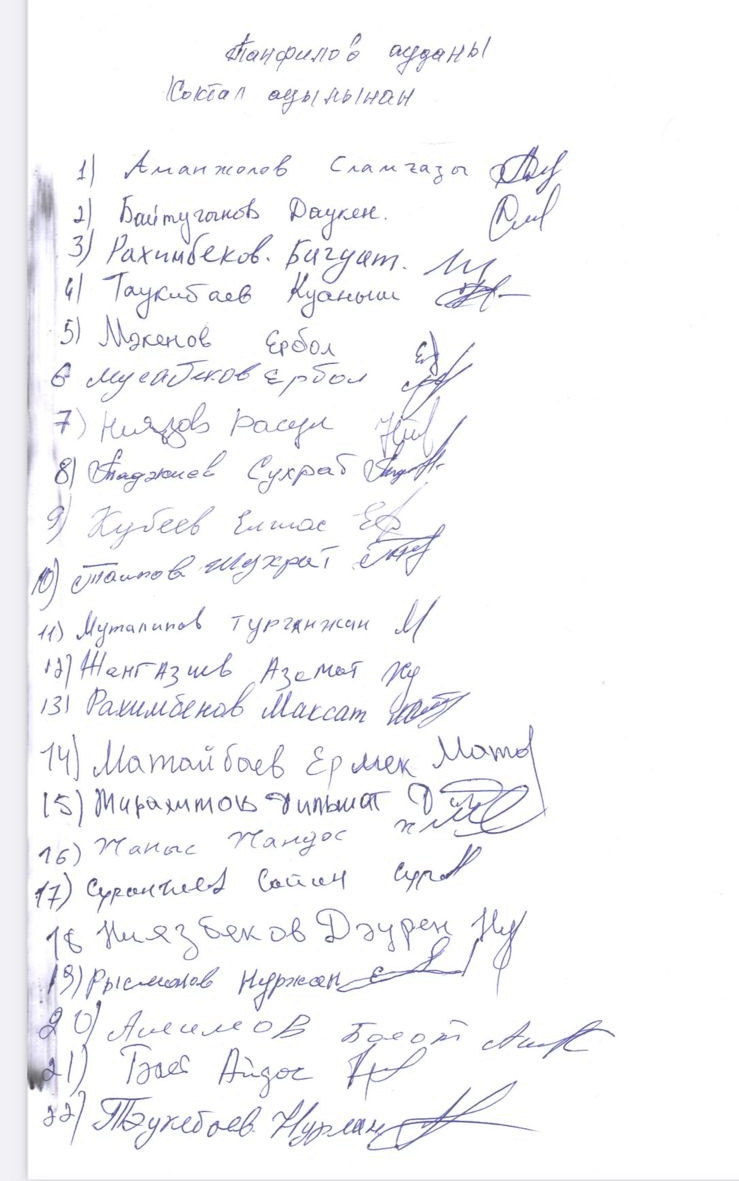 Панфилов ауданы
Көктал ауылынан
1) Аманжолов Сламгазы
2) Байтуганов Даукен.
3) Рахимбеков. Багдат.
4) Таукибаев Куаныш
5) Мәкенов Ербол
6 Мусабеков Ербол
7) Ниязов Расул
8) Таджиев Сухрат
9) Кубеев Елиас
10) Таипов Шухрат
11) Муталипов Турганжан М
12) Жангазиев Азамат
13) Рахимбеков Максат
14) Матайбаев Ермек Мата
15) Мирахметов Дильшат
16) Жаныс Жандос
17) Суранчиев Сайын
18 Ниязбеков Дәурен
19) Рысмаков Нуржан
20) Акимов Болот
21) Айдос
22) Тәукебаев Нурлан